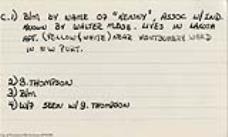 C.1) B/M BY NAME OF "KENNY", ASSOC W/IND.
KNOWN BY WALTER MUSE. LIVES IN LAKOTA
APT. (YELLOW & WHITE) NEAR MONTGOMERY WARD
IN NEW PORT.
2) B. THOMPSON
3) B/M
4) W/F SEEN W/ B. THOMPSON